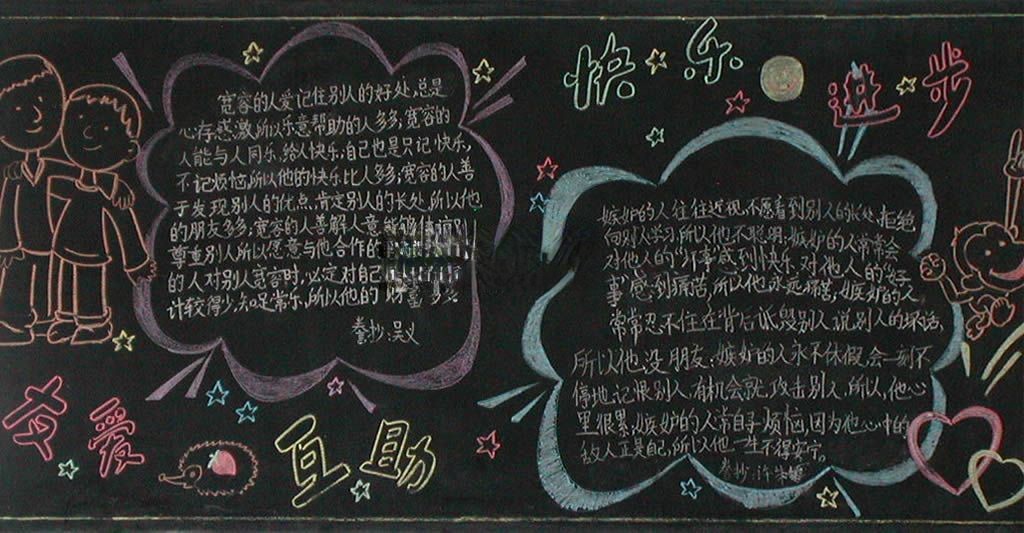 快乐进步
宽容的人爱记住别人的好处,总是
心存感激,所以乐意帮助的人多多;宽容的
人能与人同乐,给人快乐,自己也是只记快乐,
不记烦恼,所以他的快乐比人多多;宽容的人善
于发现别人的优点,肯定别人的长处,所以他
的朋友多多;宽容的人善解人意能够体谅别
尊重别人所以愿意与他合作的
的人对别人宽容时,必定对自己
计较得少,知足常乐,所以他的财富多多
誊抄:吴义
嫉妒的人往往近视,不愿看到别人的长处,拒绝
向别人学习,所以他不聪明;嫉妒的人常常会
对他人的"坏事"感到快乐,对他人的"好
事"感到痛苦,所以他永远痛苦;嫉妒的人
常常忍不住在背后诋毁别人说别人的坏话,
所以他没朋友;嫉妒的人永不休假,会一刻不
停地记恨别人,有机会就攻击别人,所以,他心
里很累;嫉妒的人常自寻烦恼,因为他心中的
敌人正是自己,所以他一生不得安宁。
誊抄:许
友爱互助